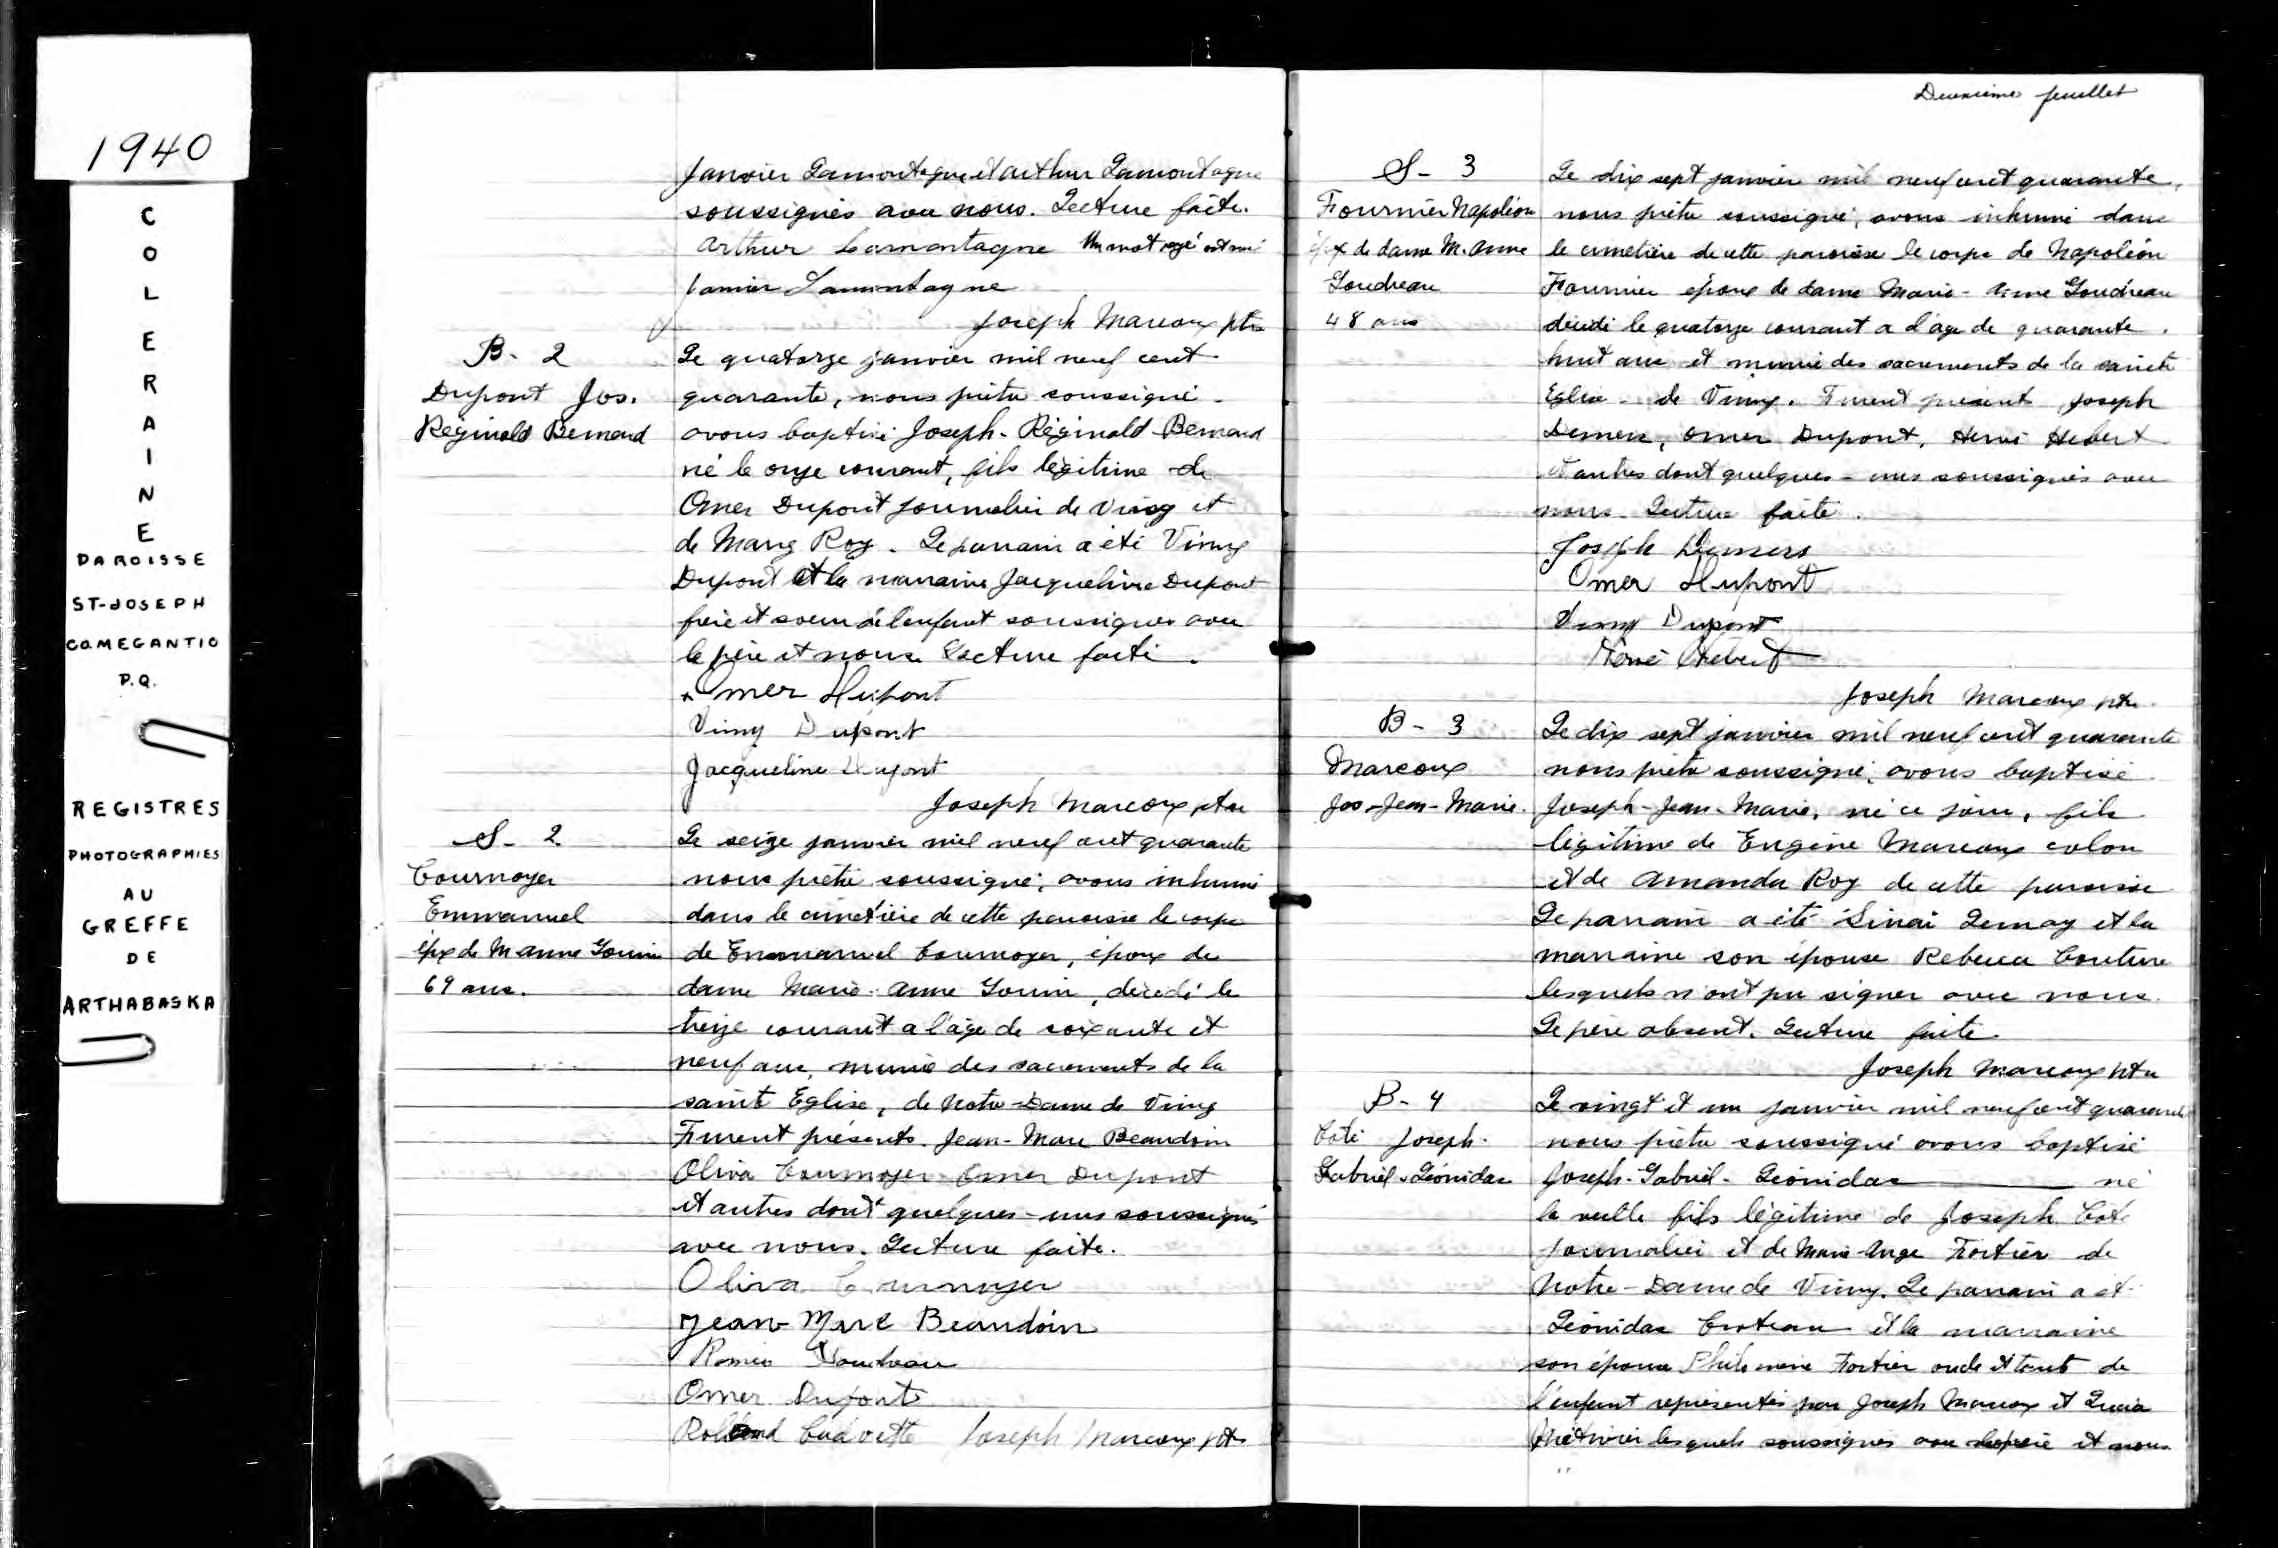 1940
COLERAINE
PAROISSE
ST-JOSEPH
CO.MEGANTIC
P.Q.
REGISTRES
PHOTOGRAPHIES
AU
GREFFE
DE
ARTHABASKA
Janvier Lamontagne et Arthur Lamontagne
soussignés avec nous. Lecture faite.
Arthur Lamontagne Un mot rayé est nul
Janvier Lamontagne
Joseph Marcoux ptre
B- 2
Dupont Jos.
Réginald Bernard
Le quatorze janvier mil neuf cent
quarante, nous prêtre soussigné
avons baptisé Joseph-Réginald-Bernard
né le onze courant, fils légitime de
Omer Dupont journalier de Vimy et
de Mary Roy. Le parrain a été Vimy
Dupont et la marraine Jacqueline Dupont
frère et soeur de l'enfant soussignés avec
le père et nous. Lecture faite.
Omer Dupont
Vimy Dupont
Jacqueline Dupont
Joseph Marcoux ptre
S- 2
Cournoyer
Emmanuel
épx de M Anne Gouin
69 ans.
Le seize janvier mil neuf cent quarante
nous prêtre soussigné, avons inhumé
dans le cimetière de cette paroisse le corps
de Emmanuel Cournoyer, époux de
dame Marie-Anne Gouin, décédé le
treize courant a l'âge de soixante et
neuf ans, munie des sacrements de la
sainte Eglise, de Notre-Dame de Vimy
Furent présents Jean-Marc Beaudoin
Oliva Cournoyer Omer Dupont
et autres dont quelques-uns soussignés
avec nous. Lecture faite.
Oliva Cournoyer
Jean-Marc Beaudoin
Omer Dupont
Joseph Marcoux ptre
Deuxième feuillet
S- 3
Fournier Napoléon
épx de dame M. Anne
Goudreau
48 ans
Le dix sept janvier mil neuf cent quarante,
nous prêtre soussigné, avons inhumé dans
le cimetière de cette paroisse le corps de Napoléon
Fournier époux de dame Marie-Anne Goudreau
décédé le quatorze courant a l'âge de quarante
huit ans et munie des sacrements de la sainte
Eglise de Vimy. Furent présents Joseph
Demers, Omer Dupont, Hervé Hebert
et autres dont quelques-uns soussignés avec
nous. Lecture faite.
Joseph Demers
Omer Dupont
Vimy Dupont
Hervé Hebert
Joseph Marcoux ptre
B- 3
Marcoux
Jos-Jean-Marie.
Le dix sept janvier mil neuf cent quarante
nous prêtre soussigné, avons baptisé
Joseph-Jean-Marie, né ce jour, fils
légitime de Eugène Marcoux colon
et de Amanda Roy de cette paroisse
Le parrain a été Sinaï Lemay et la
marraine son épouse Rebecca Couture
lesquels n'ont pu signer avec nous.
Le père absent. Lecture faite.
Joseph Marcoux ptre
B- 4
Coté Joseph-
Gabriel-Léonidas
Le vingt et un janvier mil neuf cent quarante
nous prêtre soussigné avons baptisé
Joseph-Gabriel-Léonidas né
la veille fils légitime de Joseph Coté
journalier et de Marie-Ange Fortier de
Notre-Dame de Vimy. Le parrain a été
Léonidas Croteau et la marraine
son épouse Philomène Fortier oncle et tante de
l'enfant représentés par Joseph Marcoux et Lucia
Métivier lesquels soussignés avec le père et nous